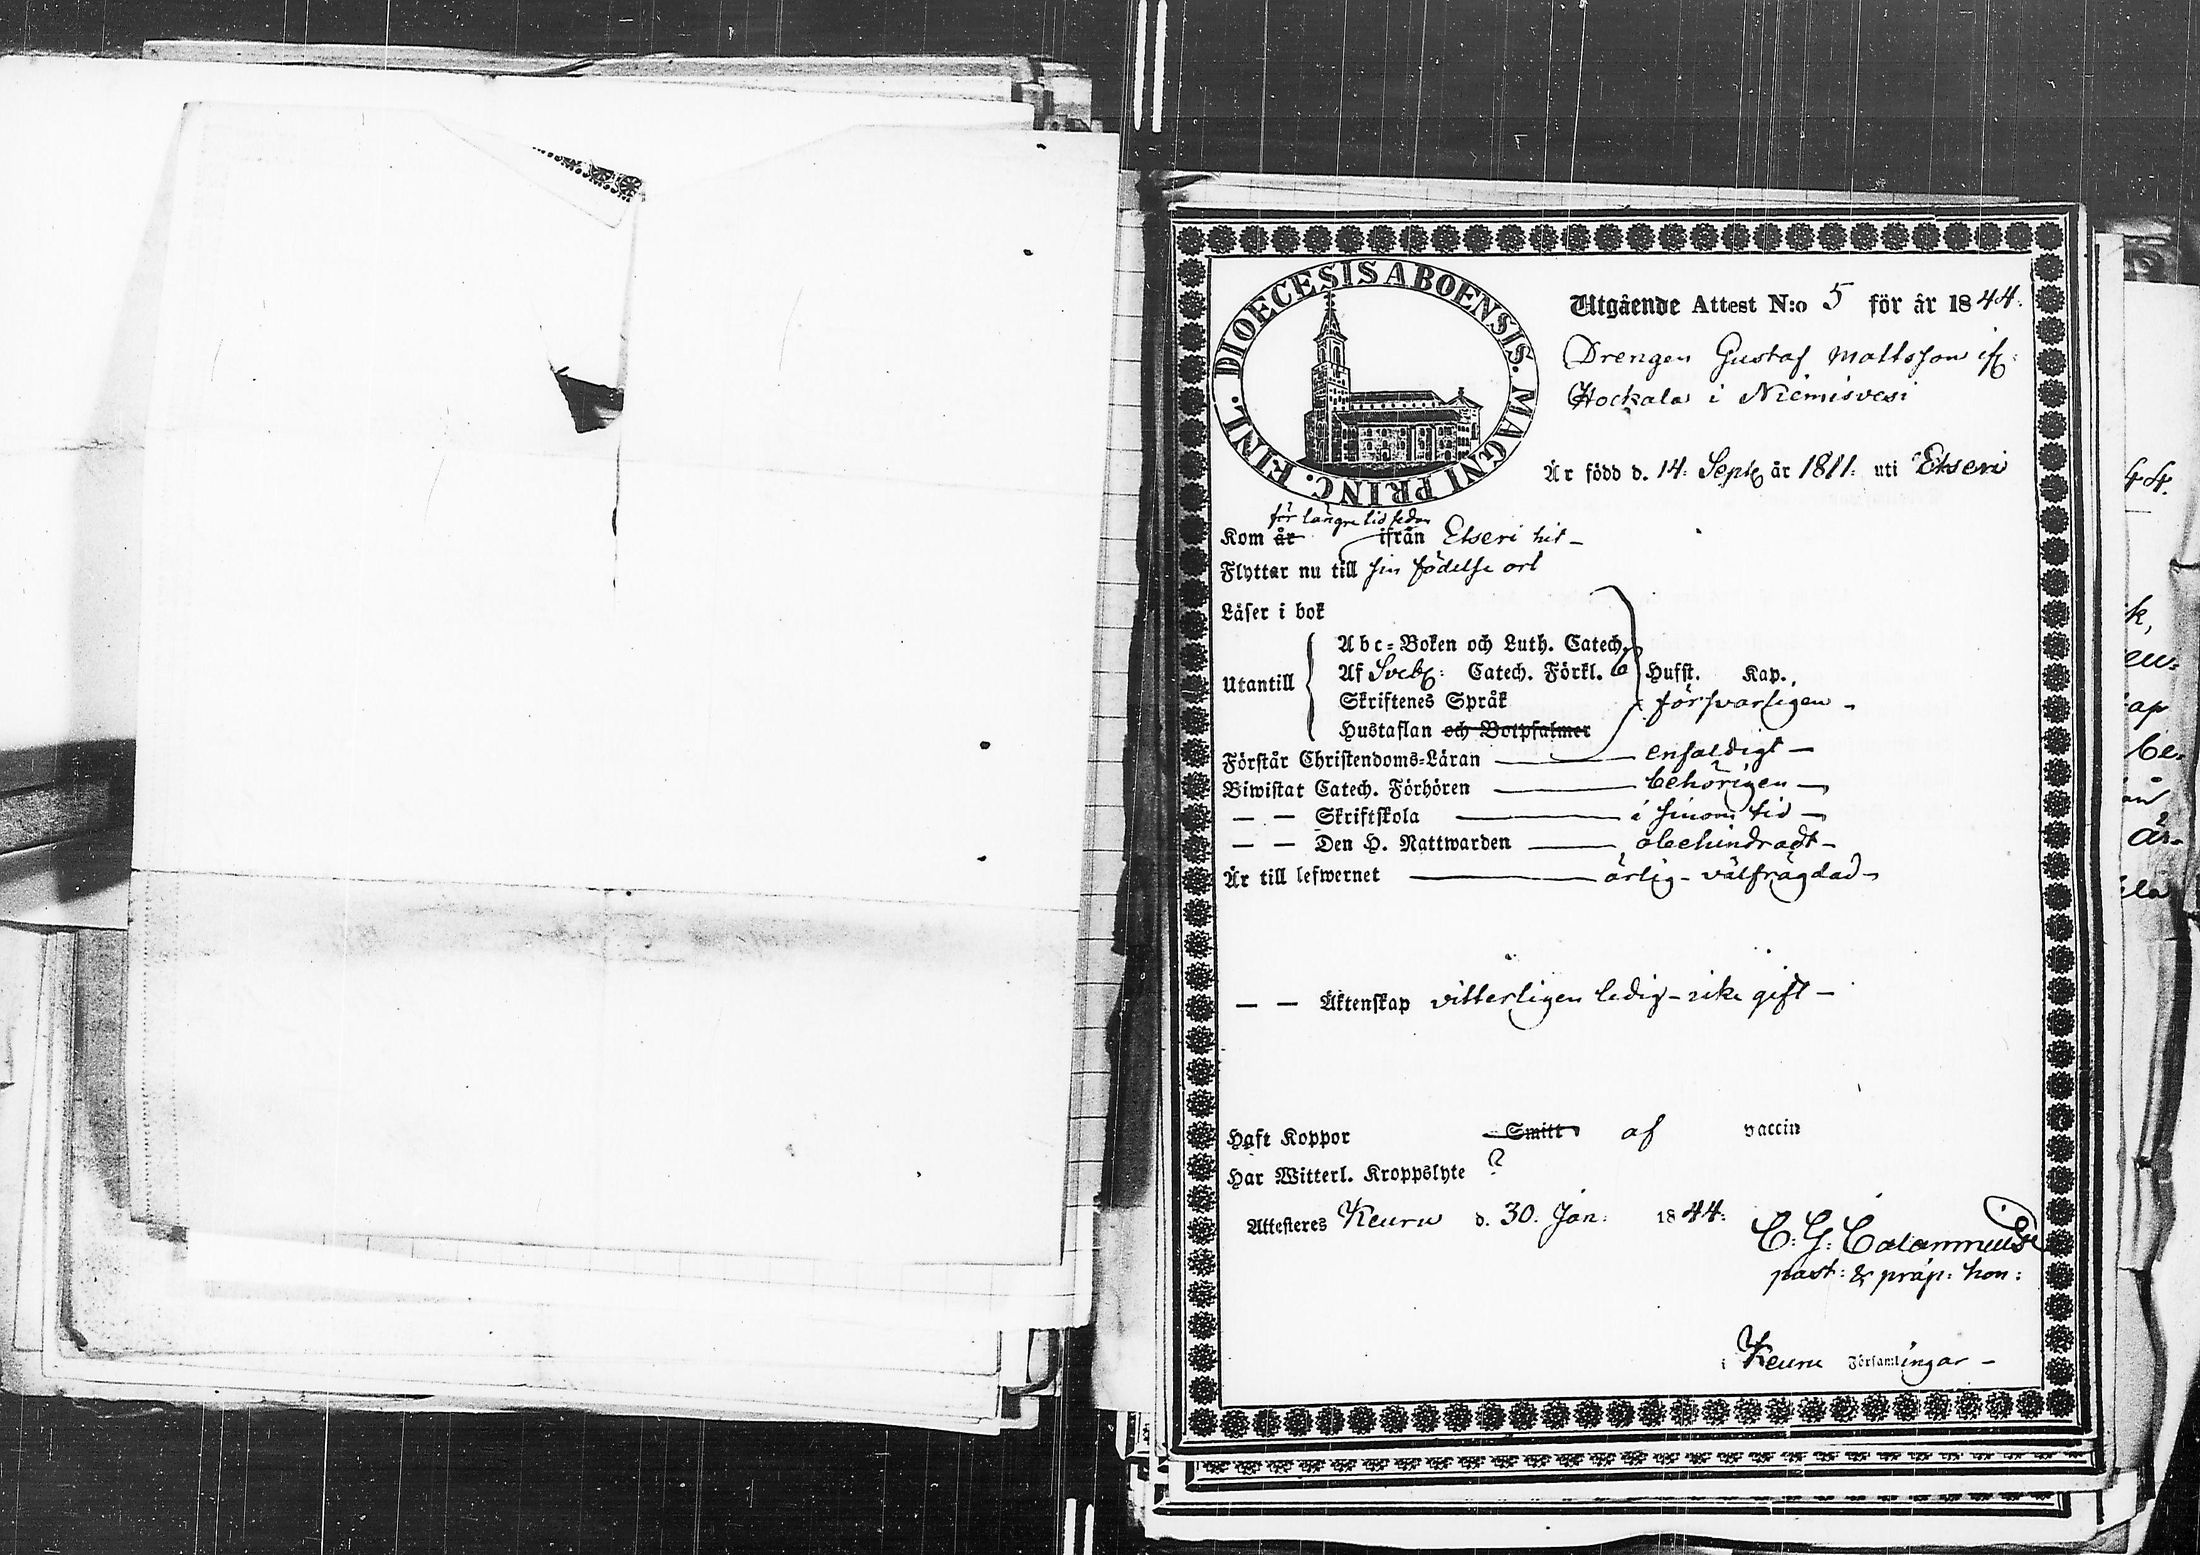 DIOECESIS ABOENSIS. MAGNI PRINC. FINL.
Utgående Attest N:o 5 för år 1844.
Drengen Gustaf Mattsson if:
Hockala i Niemisvesi
Är född d. 14: Sept år 1811: uti Etseri
för längre tid sedan
Kom år ifrån Etseri hit –
Flyttar nu till sin födelse ort
Läser i bok
Abc-Boken och Luth. Catech.
Utantill Af Sveb: Catech. Förkl. Hufst. Kap.
Skriftenes Språk försvarligen –
Hustaflan och Botpsalmer
Förstår Christendoms-Läran enfaldigt –
Biwistat Catech. Förhören behörigen –
— — Skriftskola i sinom tid –
— — Den H. Nattwarden obehindradt –
Är till lefwernet ärlig – välfrägdad –
— — Äktenskap vitterligen ledig – icke gift –
Haft Koppor Smitt af vaccin
Har Witterl. Kroppslyte ?
Attesteres Keuru d. 30. Jan: 1844:
C: G: Calamnius
past: & präp: hon:
i Keuru Församlingar –
44.
k,
en:
ap
be-
är-
la